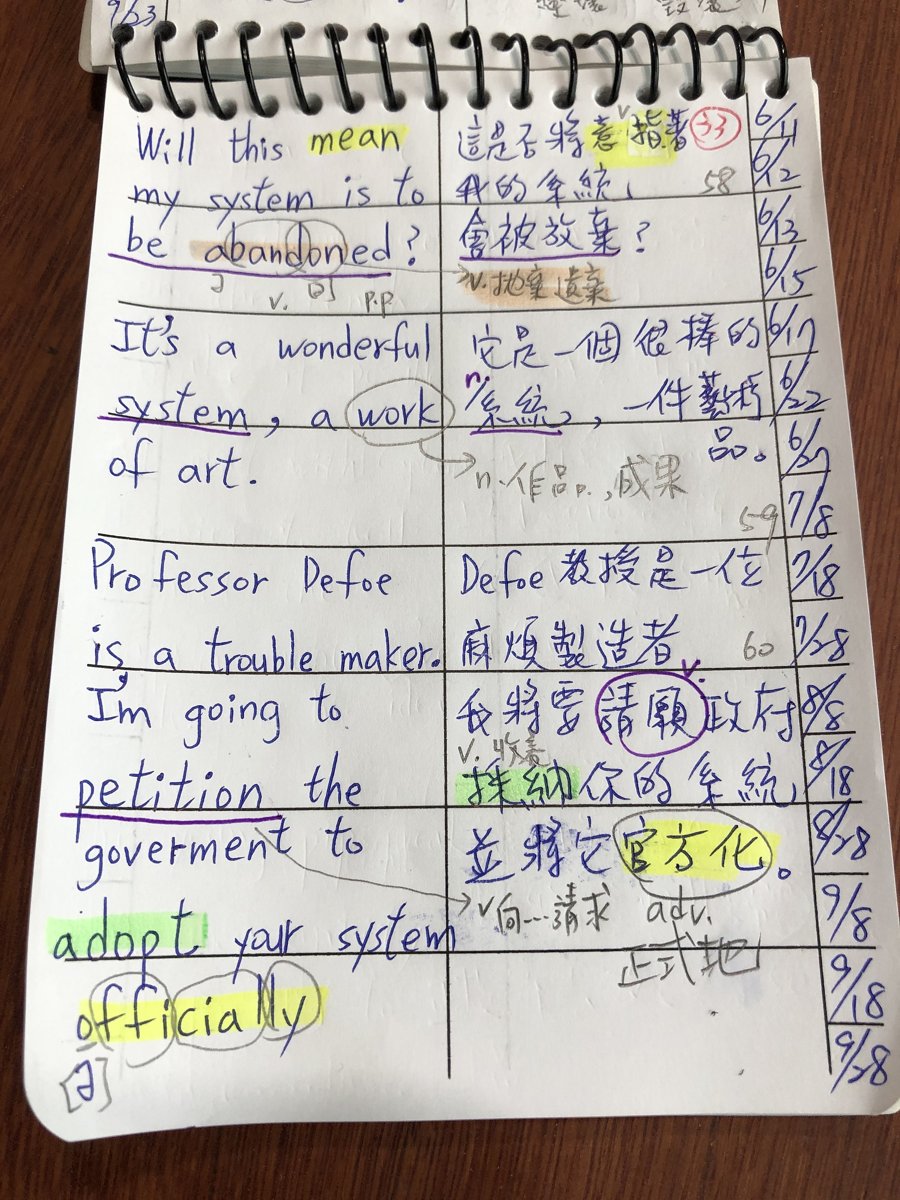 9/23
Will this mean
my system is to
be abandoned?
v. p.p
這是否將意指著
我的系統,
會被放棄?
v. 拋棄遺棄
v.
33
58
It's a wonderful
system, a work
of art.
它是一個很棒的
n.
系統, 一件藝術
品。
n. 作品, 成果
59
Professor Defoe
is a trouble maker.
Defoe 教授是一位
麻煩製造者
60
I'm going to
petition the
goverment to
adopt your system
officially
v.
我將要請願政府
v. 收養
採納你的系統
並將它官方化。
v 向…請求
adv.
正式地
6/11
6/12
6/13
6/15
6/17
6/22
6/27
7/8
7/18
7/28
8/8
8/18
8/28
9/8
9/18
9/28